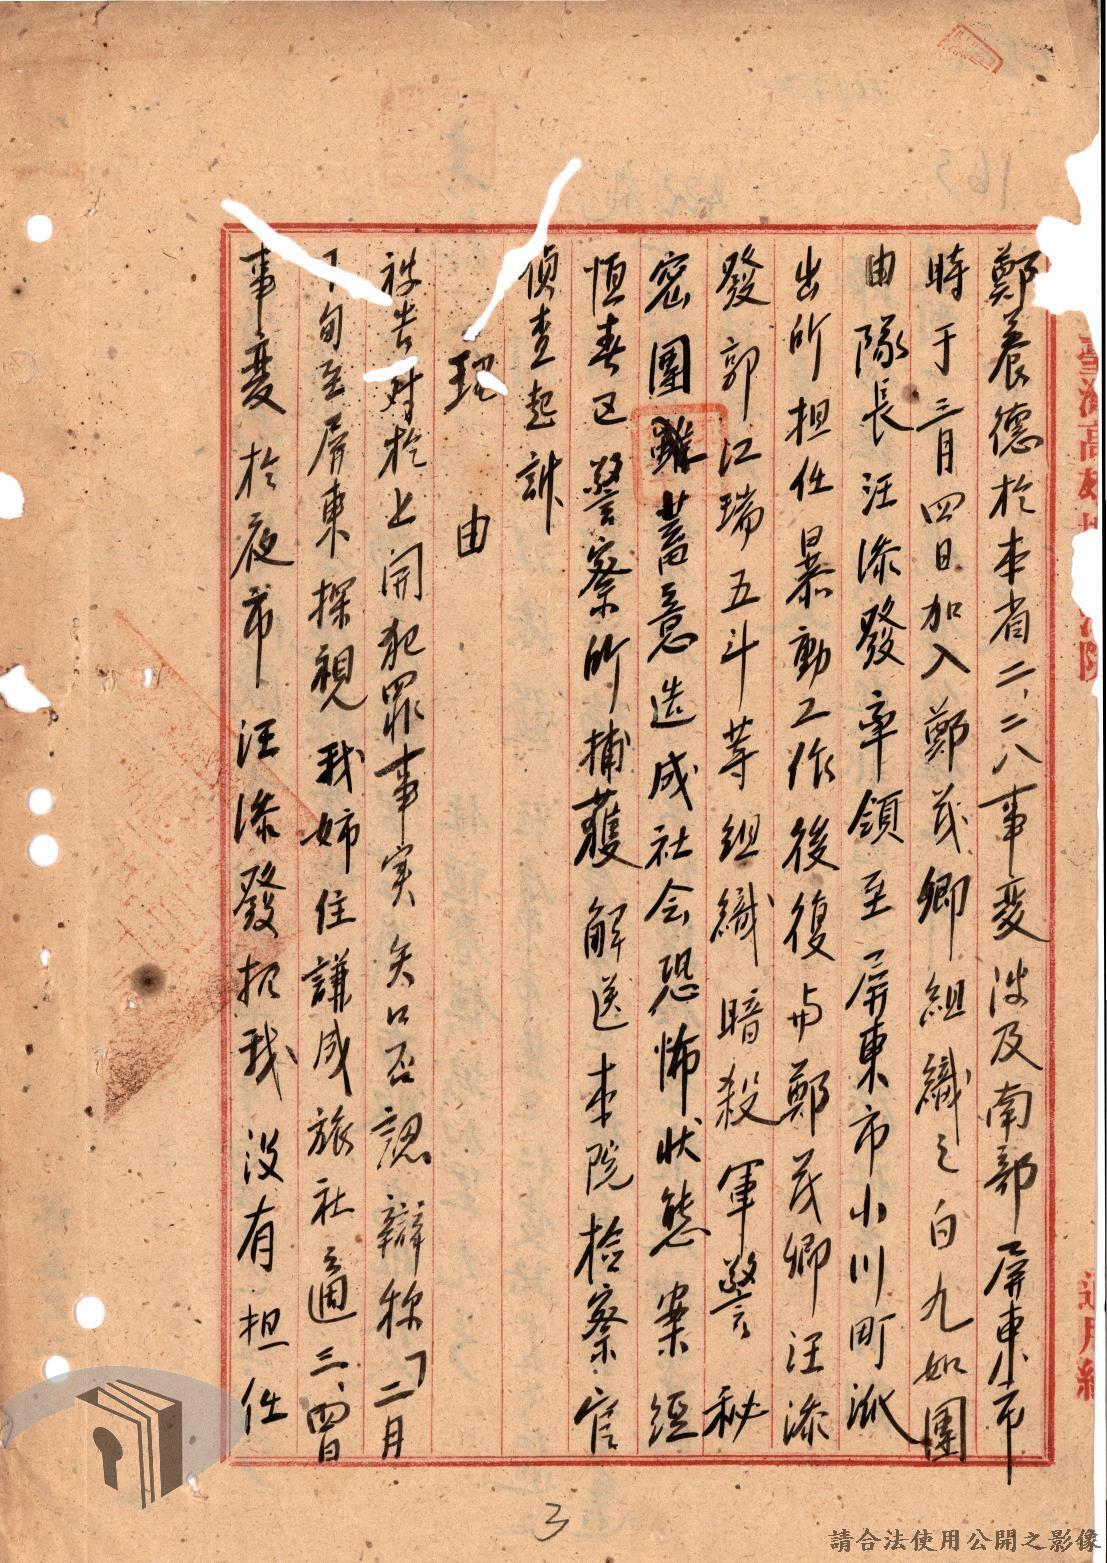 鄭養德於本省二、二八事变波及南部屏東市
時于三月四日加入鄭茂卿組織之白九如團
由隊長汪添發率領至屏東市小川町派
出所担任暴動工作後復与鄭茂卿汪添
發郭江瑞五斗等組織暗殺軍警秘
密團蓄意造成社会恐怖状態案經
恒春区警察所捕獲解送本院检察官
偵查起訴
理由
被告对於上開犯罪事实矢口否認辯称「二月
下旬至屏東探視我姉住謙成旅社適三、四日
事变於夜市汪添發招我沒有担任
3
請合法使用公開之影像